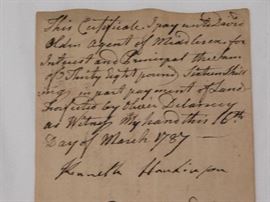 This Certificate I pay unto David
Olden Agent of Middlesex for
Interest and Principal the sum
of Thirty Eight pound, Sixteen Shill
ings, in part payment of Land
Forfeited by Oliver Delancey
as Witness My hand this 16th
Day of March 1787
Kenneth Hankinson